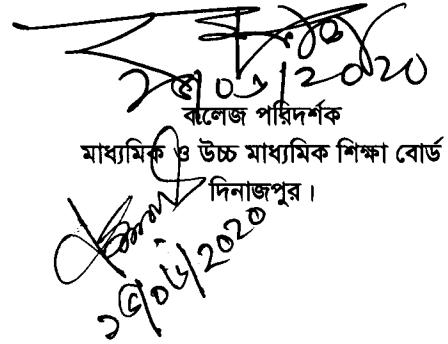 ২৫/০৬/২০২০
কলেজ পরিদর্শক
মাধ্যমিক ও উচ্চ মাধ্যমিক শিক্ষা বোর্ড
দিনাজপুর।
২৫/০৬/২০২০